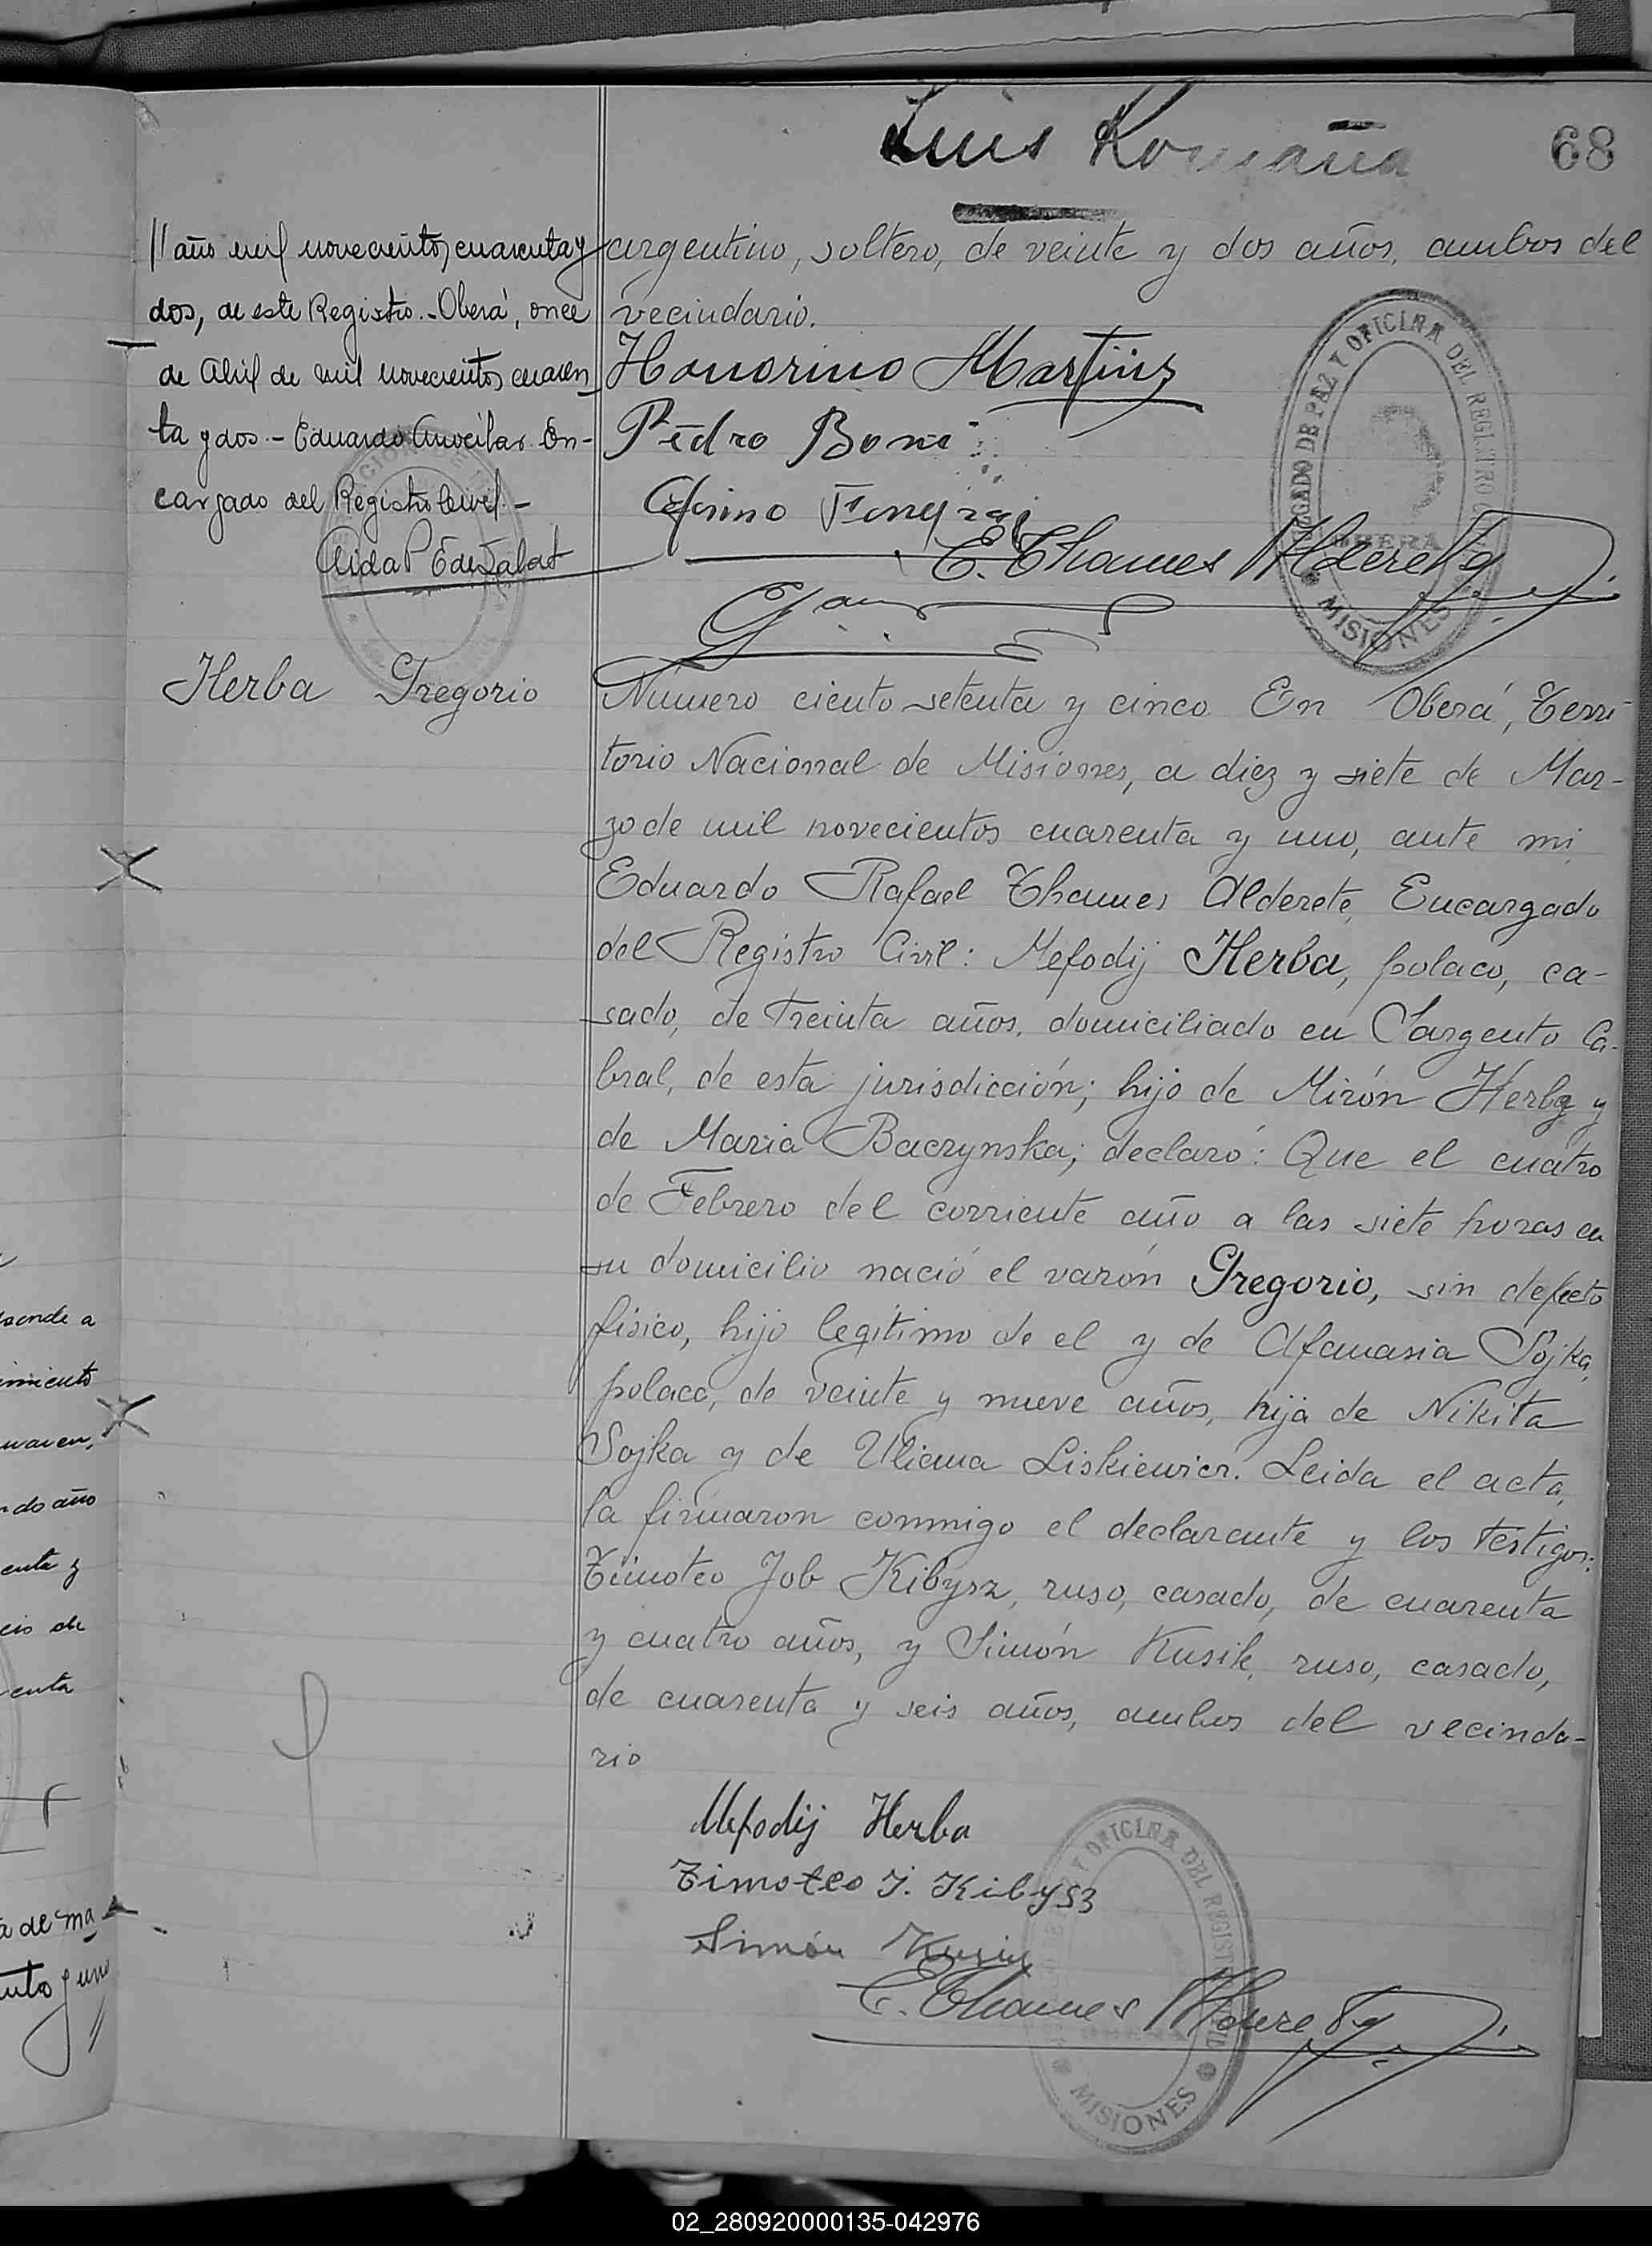 Luis Romaña
68
// año mil novecientos cuarenta y
dos, de este Registro.- Oberá, once
de Abril de mil novecientos cuaren
ta y dos.- Eduardo En-
cargado del Registro Civil.-
Aida P E de
argentino, soltero, de veinte y dos años, ambos del
vecindario.
Honorino Martins
Pedro Boni
E. Thames Alderete
JUZGADO DE PAZ Y OFICINA DEL REGISTRO CIVIL
OBERA
MISIONES
Herba Gregorio
Número ciento setenta y cinco En Oberá, Terri-
torio Nacional de Misiones, a diez y siete de Mar-
zo de mil novecientos cuarenta y uno, ante mi,
Eduardo Rafael Thames Alderete, Encargado
del Registro Civil: Mefodij Herba, polaco, ca-
sado, de treinta años, domiciliado en Sargento Ca-
bral, de esta jurisdicción; hijo de Mirón Herba y
de Maria Baczynska; declaró: Que el cuatro
de Febrero del corriente año a las siete horas en
su domicilio nació el varón Gregorio, sin defecto
físico, hijo legítimo de el y de Afanasia Sojka,
polaca, de veinte y nueve años, hija de Nikita
Sojka y de Uliana Liskiewicz. Leida el acta,
la firmaron conmigo el declarante y los testigos:
Timoteo Job Kibysz, ruso, casado, de cuarenta
y cuatro años, y Simón Kusik, ruso, casado,
de cuarenta y seis años, ambos del vecinda-
rio
Mefodij Herba
Timoteo J. Kibysz
Simón
E. Thames Alderete
Y OFICINA DEL REGISTRO
MISIONES
imiento
do año
enta y
cio de
enta
a de ma
nta y uno
02_280920000135-042976